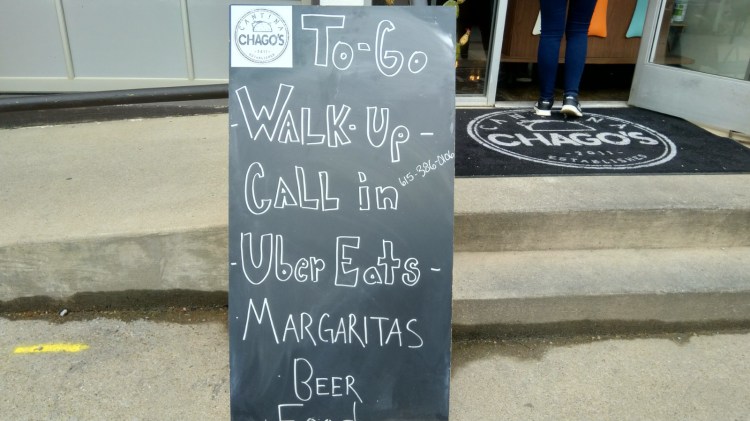 CANTINA
CHAGO'S
2011
ESTABLISHED
To-Go
-WALK-Up-
CALL in
-Uber Eats-
MARGARITAS
BEER
Food
CANTINA
CHAGO'S
-2011-
ESTABLISHED